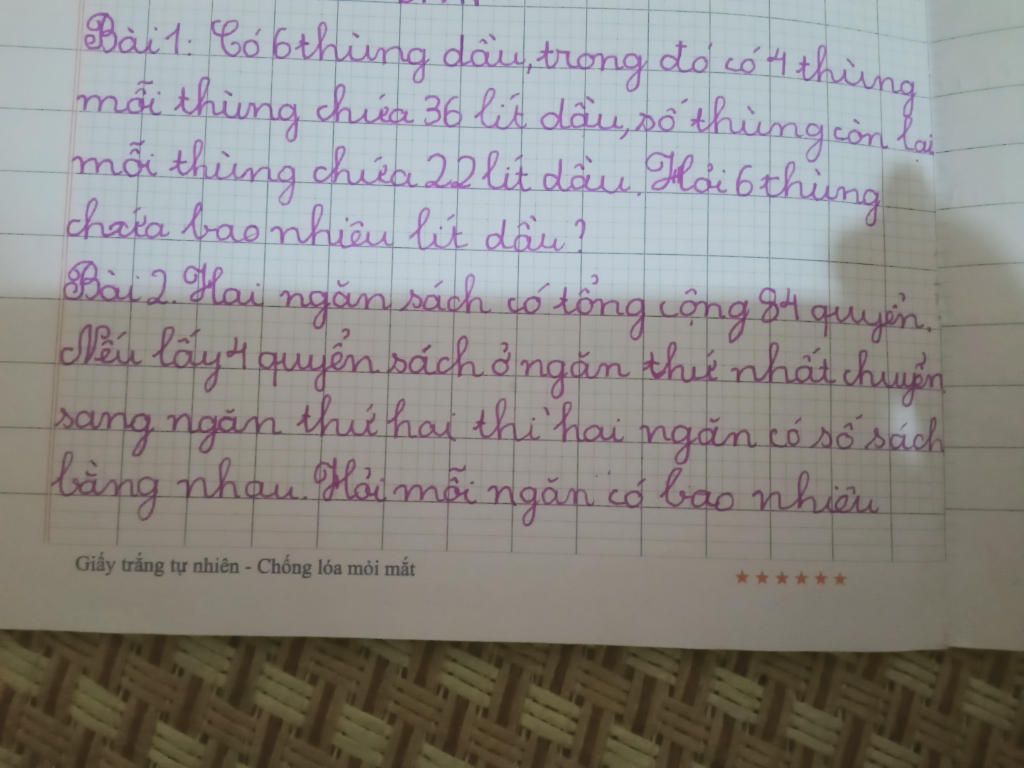 Bài 1: Có 6 thùng dầu, trong đó có 4 thùng
mỗi thùng chứa 36 lít dầu, số thùng còn lại
mỗi thùng chứa 22 lít dầu. Hỏi 6 thùng
chứa bao nhiêu lít dầu?
Bài 2. Hai ngăn sách có tổng cộng 84 quyển.
Nếu lấy 4 quyển sách ở ngăn thứ nhất chuyển
sang ngăn thứ hai thì hai ngăn có số sách
bằng nhau. Hỏi mỗi ngăn có bao nhiêu
Giấy trắng tự nhiên - Chống lóa mỏi mắt